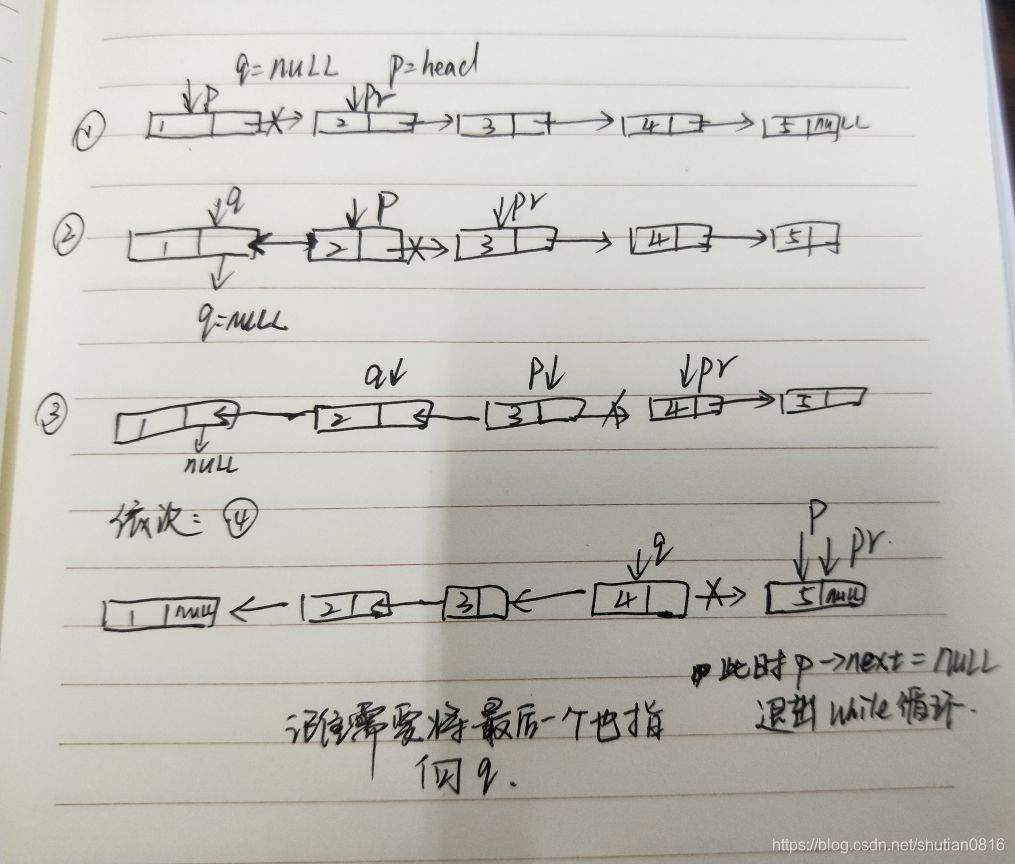 q=nuLL p=head
↓p ↓pr
① 1 2 3 4 5 nuLL
↓q ↓p ↓pr
② 1 2 3 4 5
q=nuLL
q↓ p↓ ↓pr
③ 1 2 3 4 5
null
依次: ④
p
↓q ↓pr.
1 null 2 3 4 5 null
此时 p->next = nuLL
退出 while循环.
记住需要将最后一个也指
向 q.
https://blog.csdn.net/shutian0816